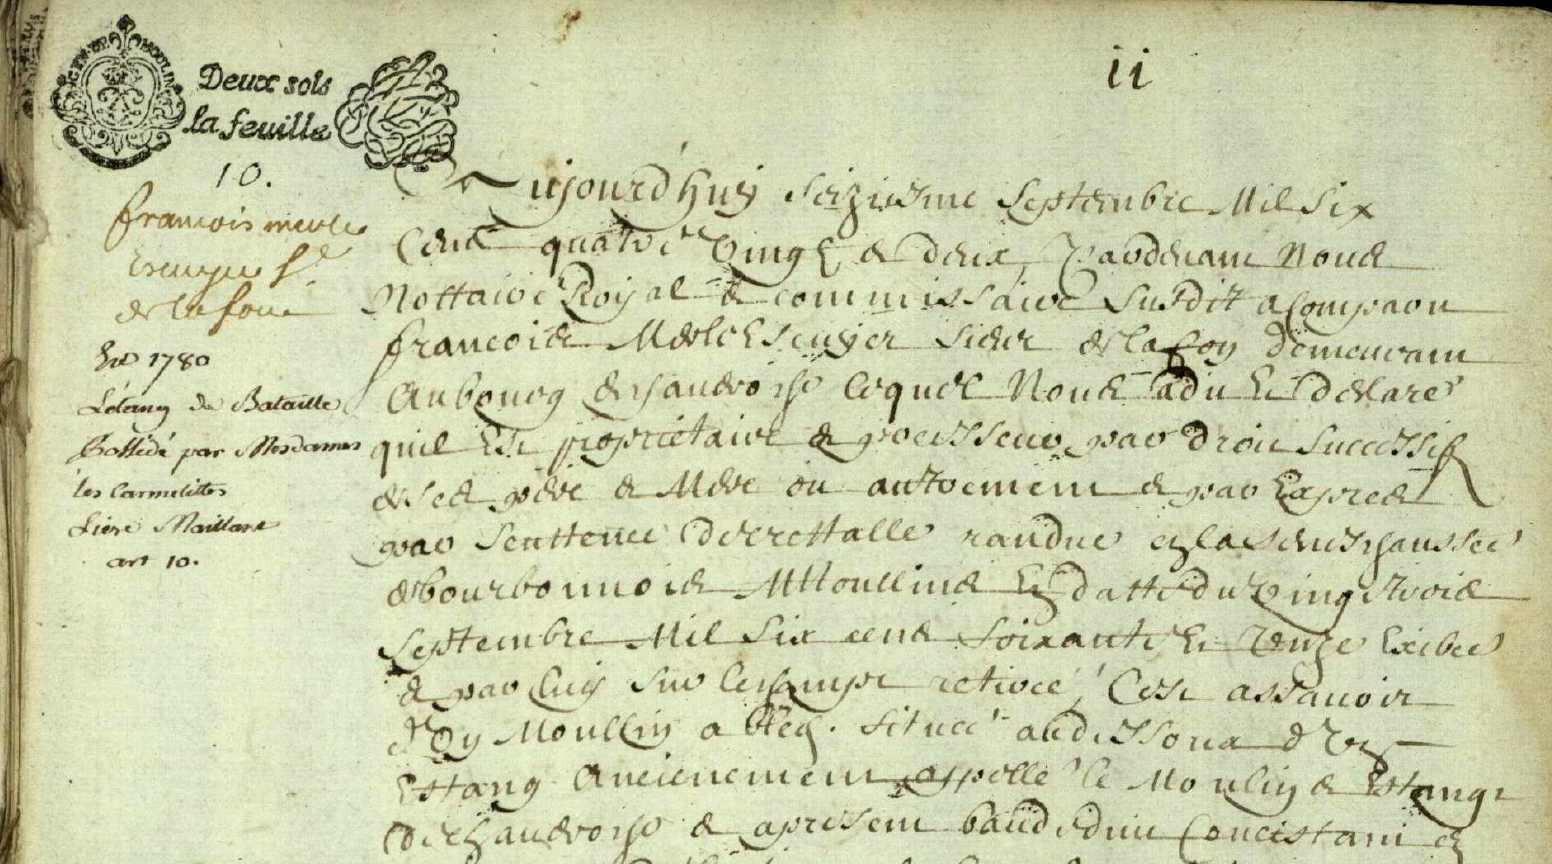 GEN. DE MOULINS
Deux sols
la feuille
ii
10.
francois merle
Escuyer Sr
de la foue
En 1780
L'étang de Bataille
Possédé par Mesdames
les Carmelittes
Liere Maillant
art 10.
Aujourd'huy seiziesme Septembre Mil six
Cent quatre Vingt & deux, Pardevant Nous
Nottaire Royal & commissaire susdit a Comparu
francois Merle Escuyer sieur de la foy demeurant
Au bourg de lequel Nous a dit Et declaré
quil Est proprietaire & pocesseur par droit successif
de ses pere & Mere ou autrement & par Expres
par Senttence decrettalle randue en la Seneschaussee
de bourbonnois A Moullins En datte du Vingt trois
Septembre Mil six cens soixante Et Unze Exibee
& par luy sur le champt retiree, C'est assavoir
d'Un Moullin a bled situé au dessoux d'Un
Estang Anciennement appellé le Moulin & Estang
de & a present Concistant en